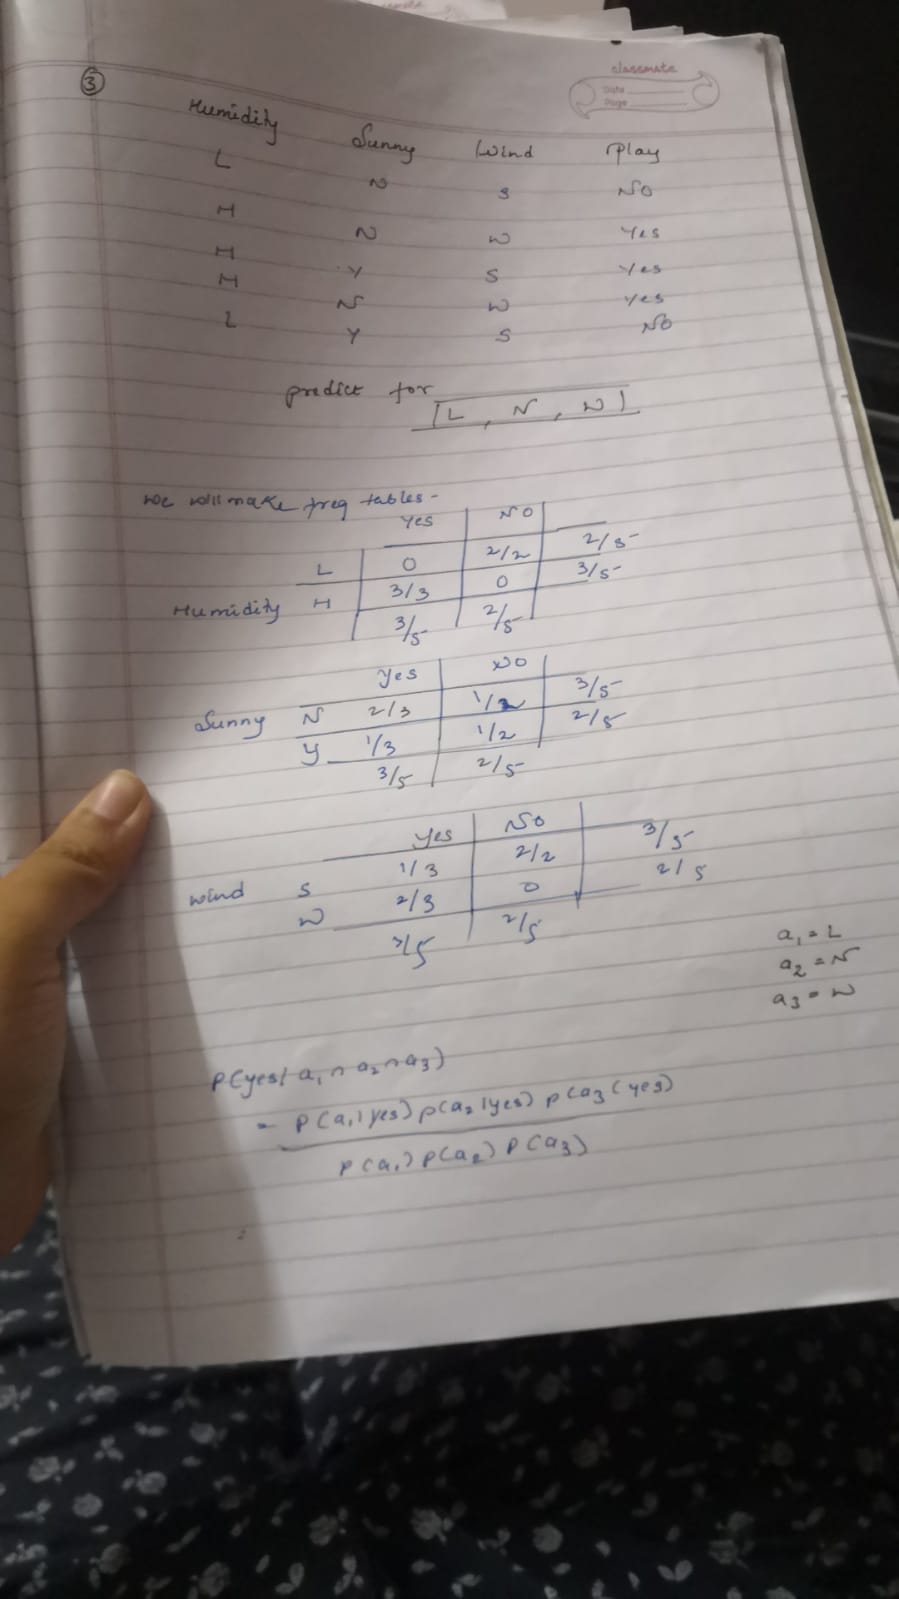 classmate
Date
Page
3
Humidity Sunny Wind Play
L N S NO
H N W Yes
H Y S Yes
H N W yes
L Y S NO
predict for
[L, N, W]
we will make freq tables-
Yes NO
L 0 2/2 2/5
Humidity H 3/3 0 3/5
3/5 2/5
Yes NO
Sunny N 2/3 1/2 3/5
Y 1/3 1/2 2/5
3/5 2/5
Yes NO
wind S 1/3 2/2 3/5
W 2/3 0 2/5
3/5 2/5
a₁ = L
a₂ = N
a₃ = W
P(yes/a₁∩a₂∩a₃)
= P(a₁|yes) p(a₂|yes) p(a₃(yes)
p(a₁) p(a₂) P(a₃)